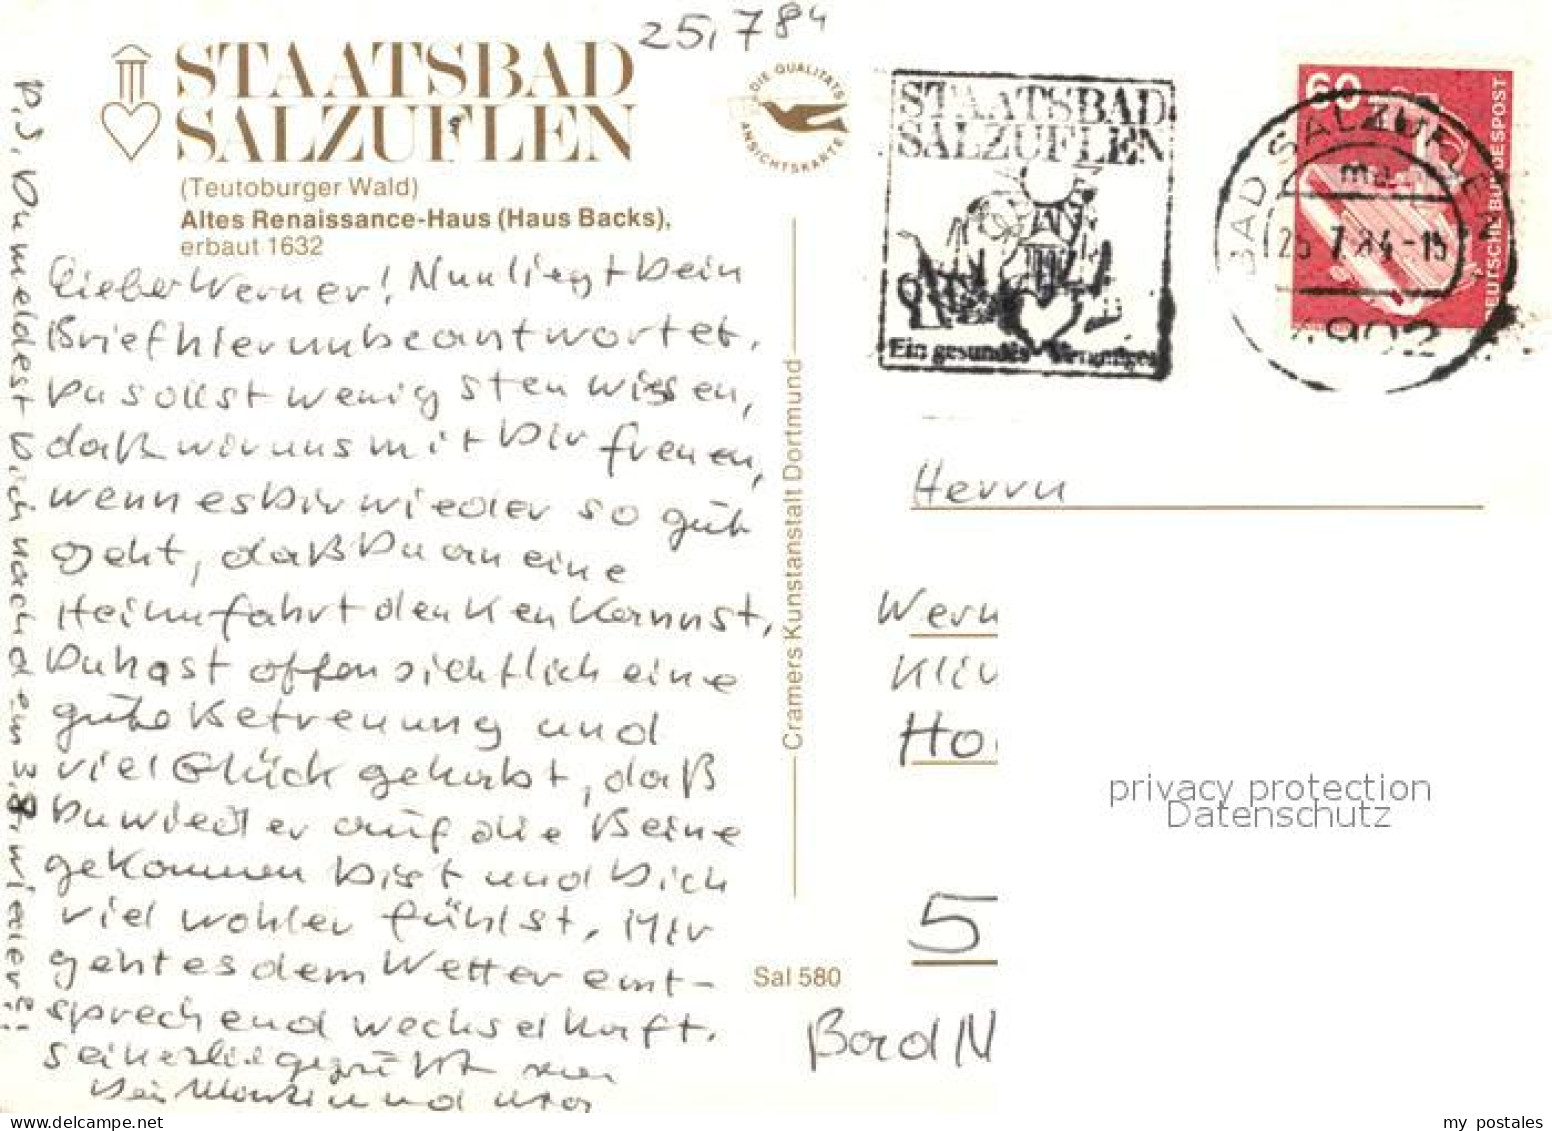 25.7.84
STAATSBAD
SALZUFLEN
(Teutoburger Wald)
Altes Renaissance-Haus (Haus Backs),
erbaut 1632
DIE QUALITÄTS
ANSICHTSKARTE
Lieber Werner! Nun liegt Dein
Brief hier unbeantwortet.
Du sollst wenigsten wissen,
daß wir uns mit Dir freuen,
wenn es Dir wieder so gut
geht, daß Du an eine
Heimfahrt denken kannst,
Du hast offensichtlich eine
gute Betreuung und
viel Glück gehabt, daß
Du wieder auf die Beine
gekommen bist und Dich
viel wohler fühlst. Mir
geht es dem Wetter ent-
sprechend wechselhaft.
Sei herzlich gegrüßt von
Dein Martin und
P.S. Du meldest Dich nach dem 3.8. wieder?!
Cramers Kunstanstalt Dortmund
Sal 580
STAATSBAD
SALZUFLEN
Ein gesundes Vergnügen
60
DEUTSCHE BUNDESPOST
BAD SALZUFLEN
ma
25.7.84-15
4902
Herrn
Wern
Klin
Ho
5
Bad N
privacy protection
Datenschutz
my postales